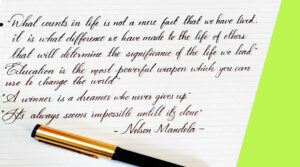 "What counts in life is not a mere fact that we have lived.
it is what difference we have made to the life of others
that will determine the significance of the life we lead"
"Education is the most powerful weapon which you can
use to change the world"
"A winner is a dreamer who never gives up"
"It's always seems impossible untill its done"
- Nelson Mandela -